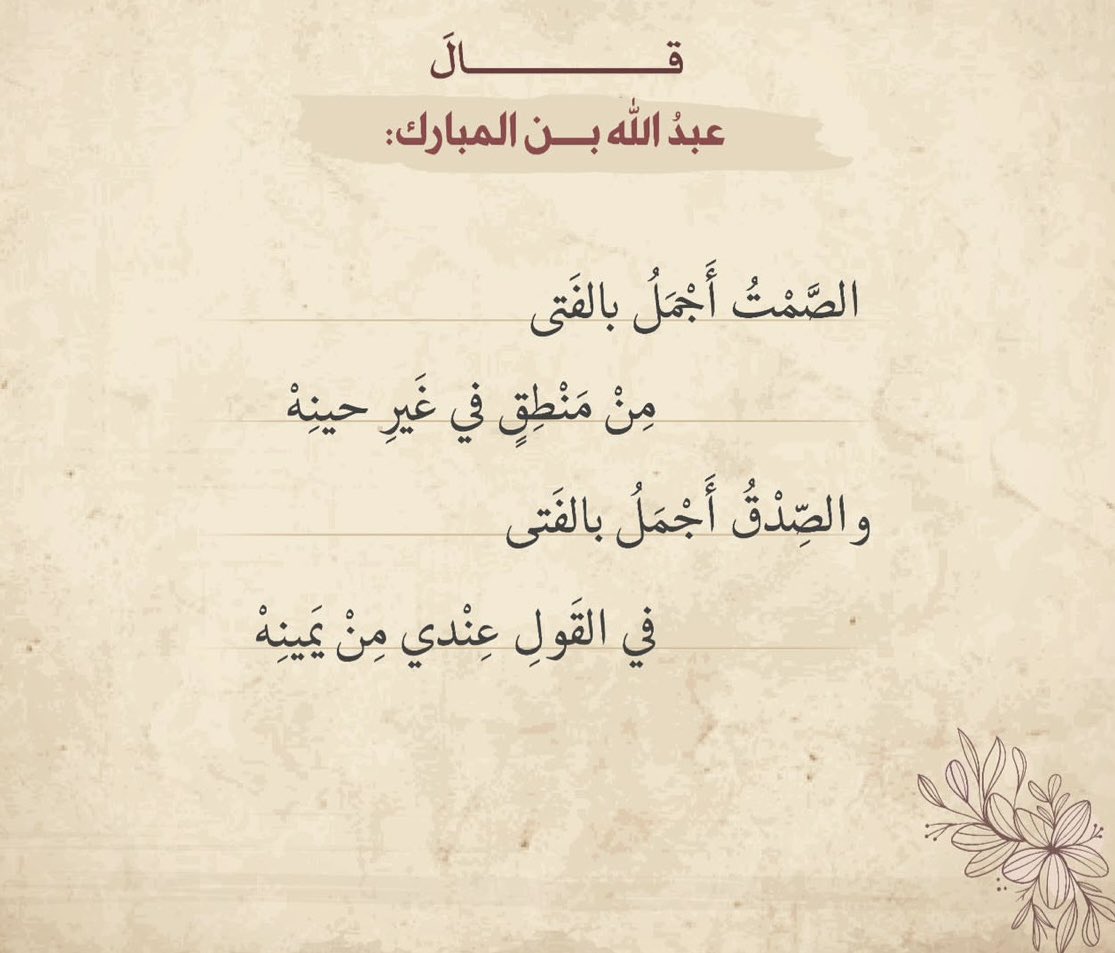 قــــــــالَ
عبدُ الله بــن المبارك:
الصَّمْتُ أَجْمَلُ بالفَتى
مِنْ مَنْطِقٍ في غَيرِ حينِهْ
والصِّدْقُ أَجْمَلُ بالفَتى
في القَولِ عِنْدي مِنْ يَمينِهْ